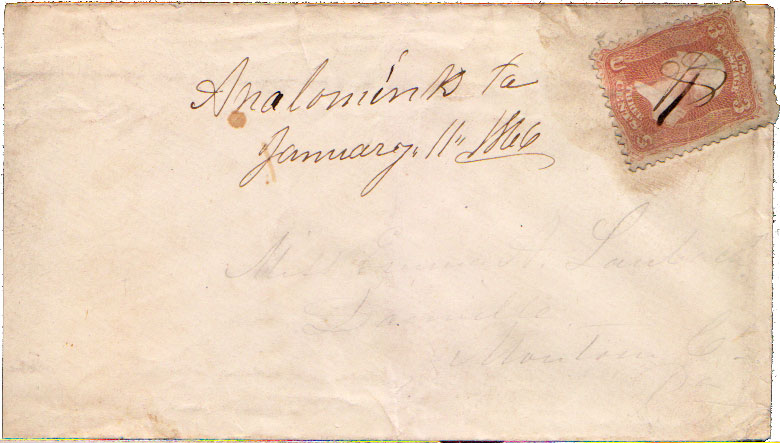 Analomink Pa
January "11" 1866
Miss Emma
Danville
Montour Co
Pa
3
3